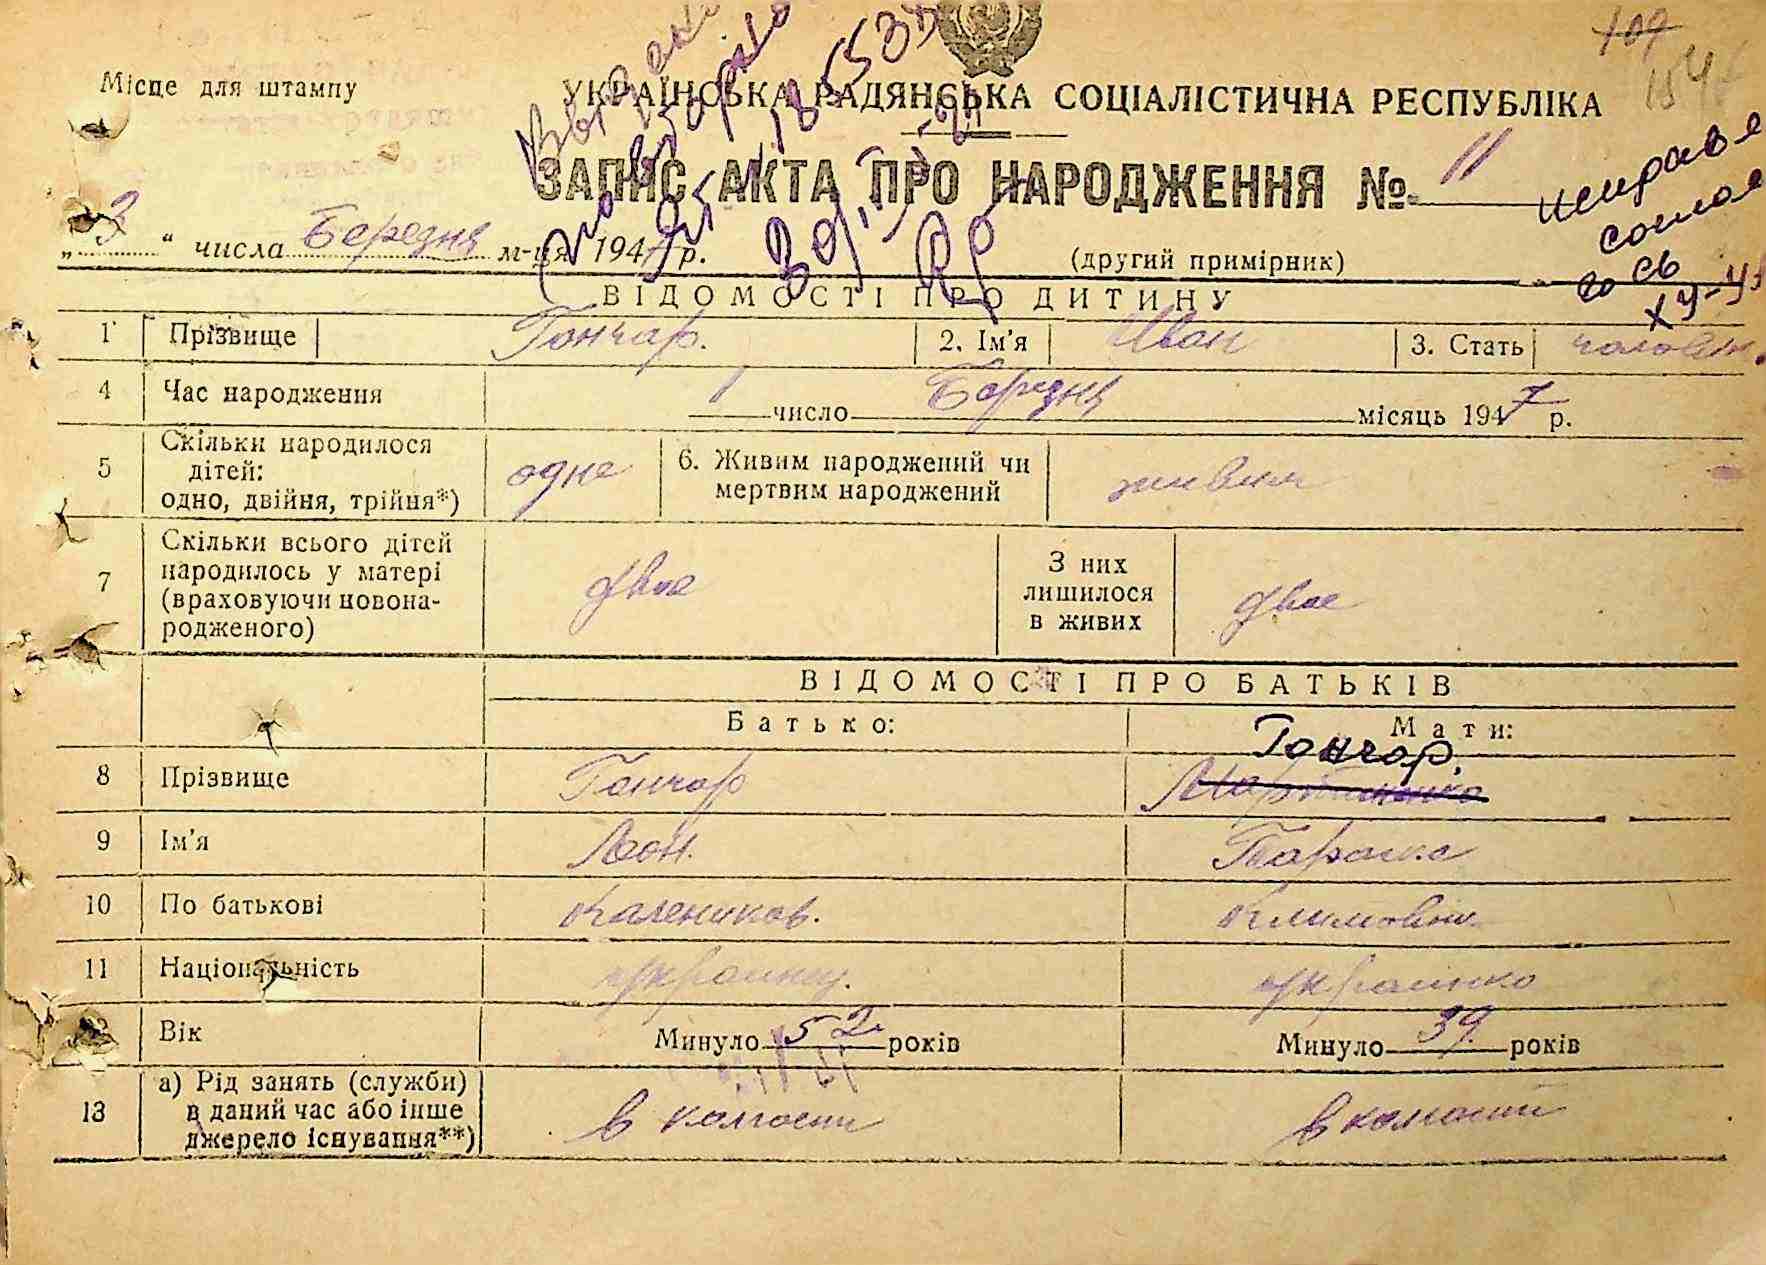 Місце для штампу
УКРАЇНСЬКА РАДЯНСЬКА СОЦІАЛІСТИЧНА РЕСПУБЛІКА
ЗАПИС АКТА ПРО НАРОДЖЕННЯ № 11
„ 3 “ числа Березня м-ця 1947 р.
(другий примірник)
ВІДОМОСТІ ПРО ДИТИНУ
1 Прізвище Гончар. 2. Ім'я Иван 3. Стать чоловіч.
4 Час народження 1 число Березня місяць 1947 р.
5 Скільки народилося дітей: одно, двійня, трійня*) одне 6. Живим народжений чи мертвим народжений живим
7 Скільки всього дітей народилось у матері (враховуючи новонародженого) двое З них лишилося в живих двое
ВІДОМОСТІ ПРО БАТЬКІВ
Батько: Мати:
8 Прізвище Гончар Гончар.
9 Ім'я Леон. Параска
10 По батькові Калеников. Климовн.
11 Національність українец. українка
12 Вік Минуло 52 років Минуло 39. років
13 а) Рід занять (служби) в даний час або інше джерело існування**) в колгоспі в колгоспі